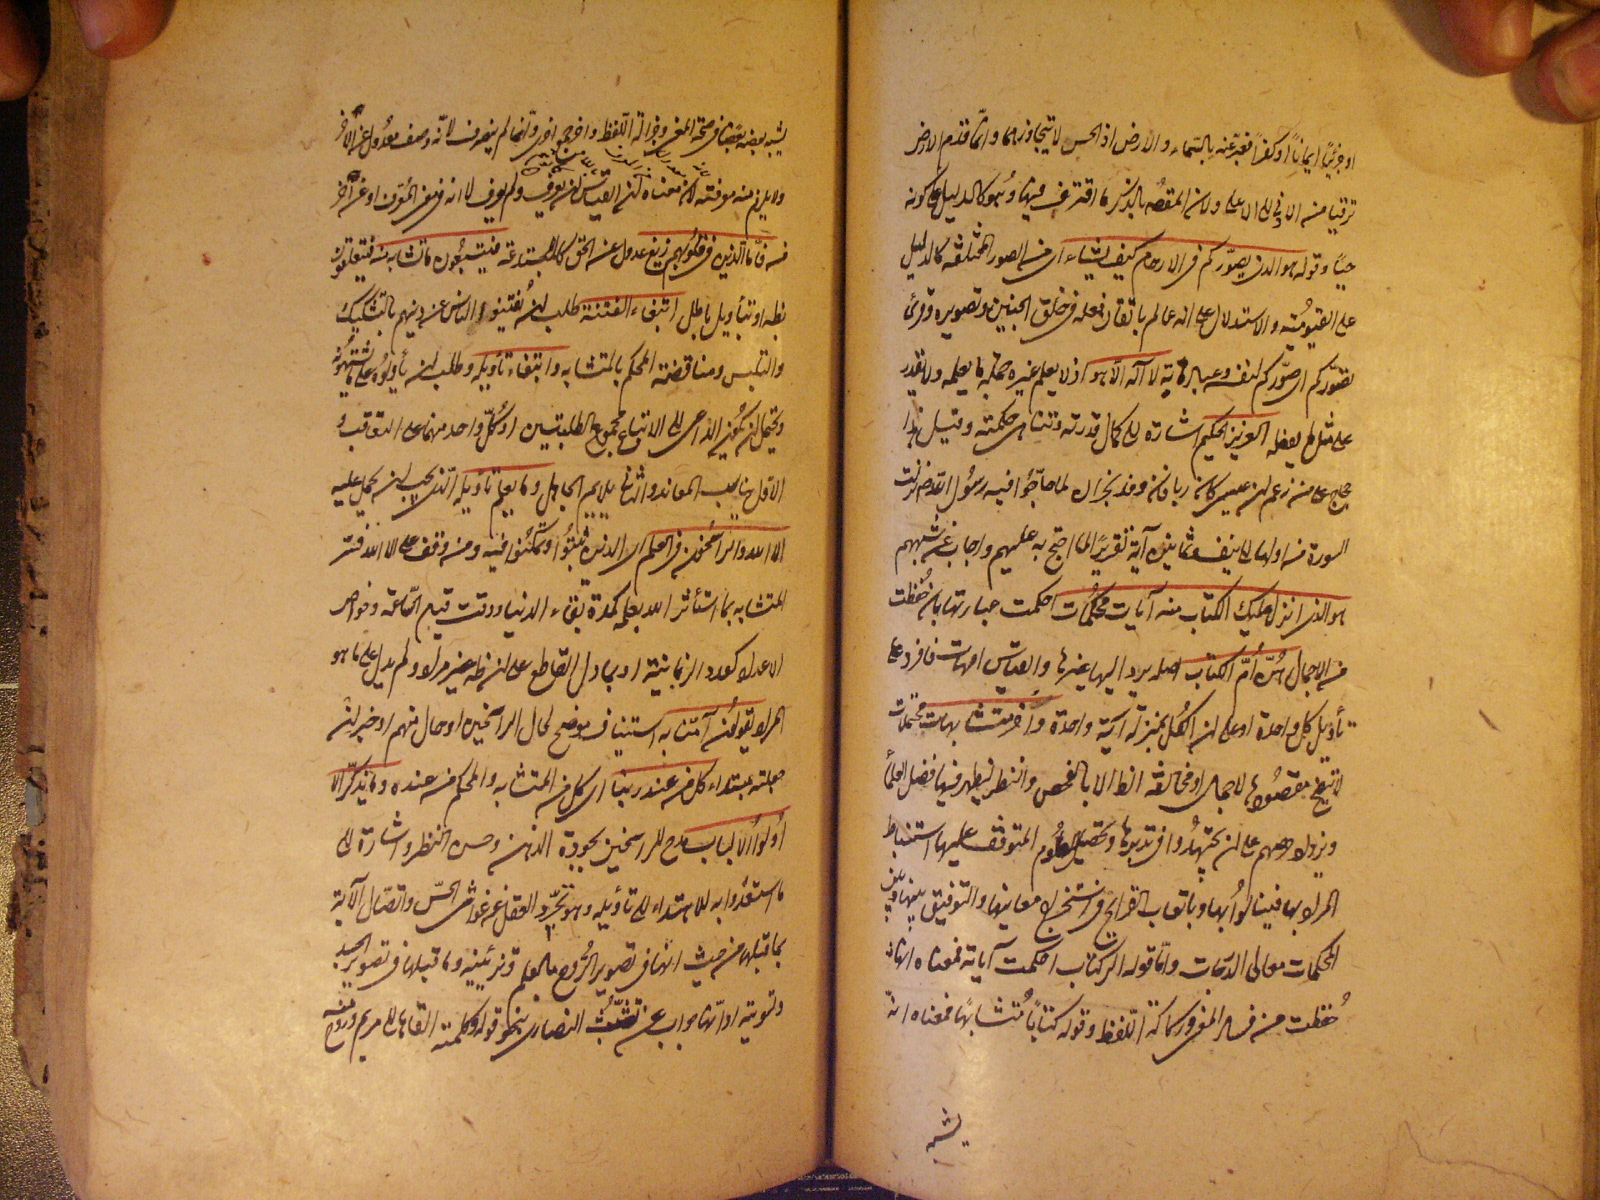 او جزئيا ايمانا او كفرا فعبر عنه بالسماء والارض اذ الحس لا يتجاوزهما وانما قدم الارض
ترقيا من الادنى الى الاعلى ولان المقصود بالذكر ما اقترف فيها وهو كالدليل على كونه
حيا وقوله هو الذي يصوركم في الارحام كيف يشاء اى من الصور المختلفة كالدليل
على القيومية والاستدلال على انه عالم باتقان فعله في خلق الجنين وتصويره وقرئ
تصوركم اى صوركم لنفسه وعبادته لا اله الا هو اذ لا يعلم غيره جملة ما يعلمه ولا يقدر
على مثل ما يفعله العزيز الحكيم اشارة الى كمال قدرته وتناهى حكمته وقيل هذا
حجاج على من زعم ان عيسى كان ربا فان وفد نجران لما حاجوا فيه رسول الله صم نزلت
السورة من اولها الى نيف وثمانين آية تقريرا لما احتج به عليهم واجاب عن شبههم
هو الذي انزل عليك الكتاب منه آيات محكمات احكمت عبارتها بان حفظت
من الاجمال هن ام الكتاب اصله يرد اليها غيرها والقياس امهات فافرد على
تأويل كل واحدة او على ان الكل بمنزلة آية واحدة واخر متشابهات محتملات
لا يتضح مقصودها لاجمال او مخالفة الظاهر الا بالفحص والنظر ليظهر فيها فضل العلماء
ويزداد حرصهم على ان يجتهدوا في تدبرها وتحصيل العلوم المتوقف عليها استنباط
المراد بها فينالوا بها وباتعاب القرائح في استخراج معانيها والتوفيق بينها وبين
المحكمات معالى الدرجات واما قوله الر كتاب احكمت آياته فمعناه انها
حفظت من فساد المعنى وركاكة اللفظ وقوله كتابا متشابها فمعناه انه
يشبه
يشبه بعضه بعضا في صحة المعنى وجزالة اللفظ واخر جمع اخرى وانما لم ينصرف لانه وصف معدول عن الآخر
ولا يلزم منه معرفته لان معناه ان القياس ان يعرف ولم يعرف لا انه في معنى المعرف او عن آخر
من فاما الذين في قلوبهم زيغ عدول عن الحق كالمبتدعة فيتبعون ما تشابه منه فيتعلقون
بظاهره او بتأويل باطل ابتغاء الفتنة طلب ان يفتنوا الناس عن دينهم بالتشكيك
والتلبيس ومناقضة المحكم بالمتشابه وابتغاء تأويله وطلب ان يأولوه على ما يشتهونه
ويحتمل ان يكون الداعى الى الاتباع مجموع الطلبتين او كل واحد منهما على التعاقب و
الاول يناسب المعاند والثانى يلايم الجاهل وما يعلم تأويله الذي يجب ان يحمل عليه
الا الله والراسخون في العلم اى الذين ثبتوا وتمكنوا فيه ومن وقف على الا الله فسر
المتشابه بما استأثر الله بعلمه كمدة بقاء الدنيا ووقت قيام الساعة وخواص
الاعداد كعدد الزبانية او بما دل القاطع على ان ظاهره غير مراد ولم يدل على ما هو
المراد يقولون آمنا به استيناف موضح لحال الراسخين او حال منهم او خبر ان
جعلته مبتداء كل من عند ربنا اى كل من المتشابه والمحكم من عنده وما يذكر الا
اولوا الالباب مدح للراسخين بجودة الذهن وحسن النظر واشارة الى
ما استعدوا به للاهتداء الى تأويله وهو تجرد العقل عن غواشى الحس واتصال الآية
بما قبلها من حيث انها في تصوير الروح بالعلم وتزيينه وما قبلها في تصوير الجسد
وتسويته او انها جواب عن تشبث النصارى بنحو قوله وكلمته القاها الى مريم وروح منه